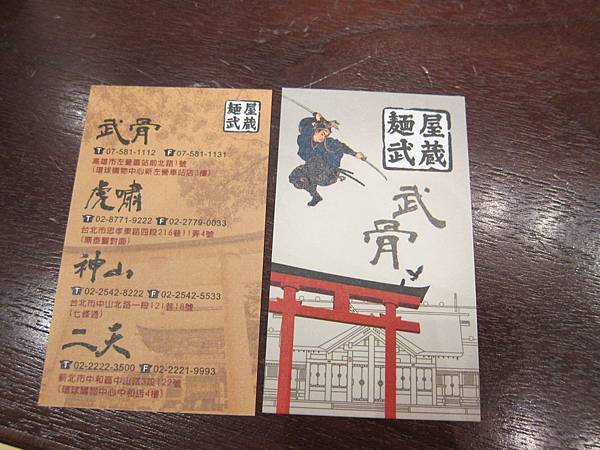 麺屋
武蔵
武骨
T 07-581-1112 F 07-581-1131
高雄市左營區站前北路1號
(環球購物中心新左營車站店3樓)
虎嘯
T 02-8771-9222 F 02-2779-0033
台北市忠孝東路四段216巷11弄4號
(鼎泰豐對面)
神山
T 02-2542-8222 F 02-2542-5533
台北市中山北路一段121巷18號
(七條通)
二天
T 02-2222-3500 F 02-2221-9993
新北市中和區中山路3段122號
(環球購物中心中和店4樓)
麺屋
武蔵
武骨